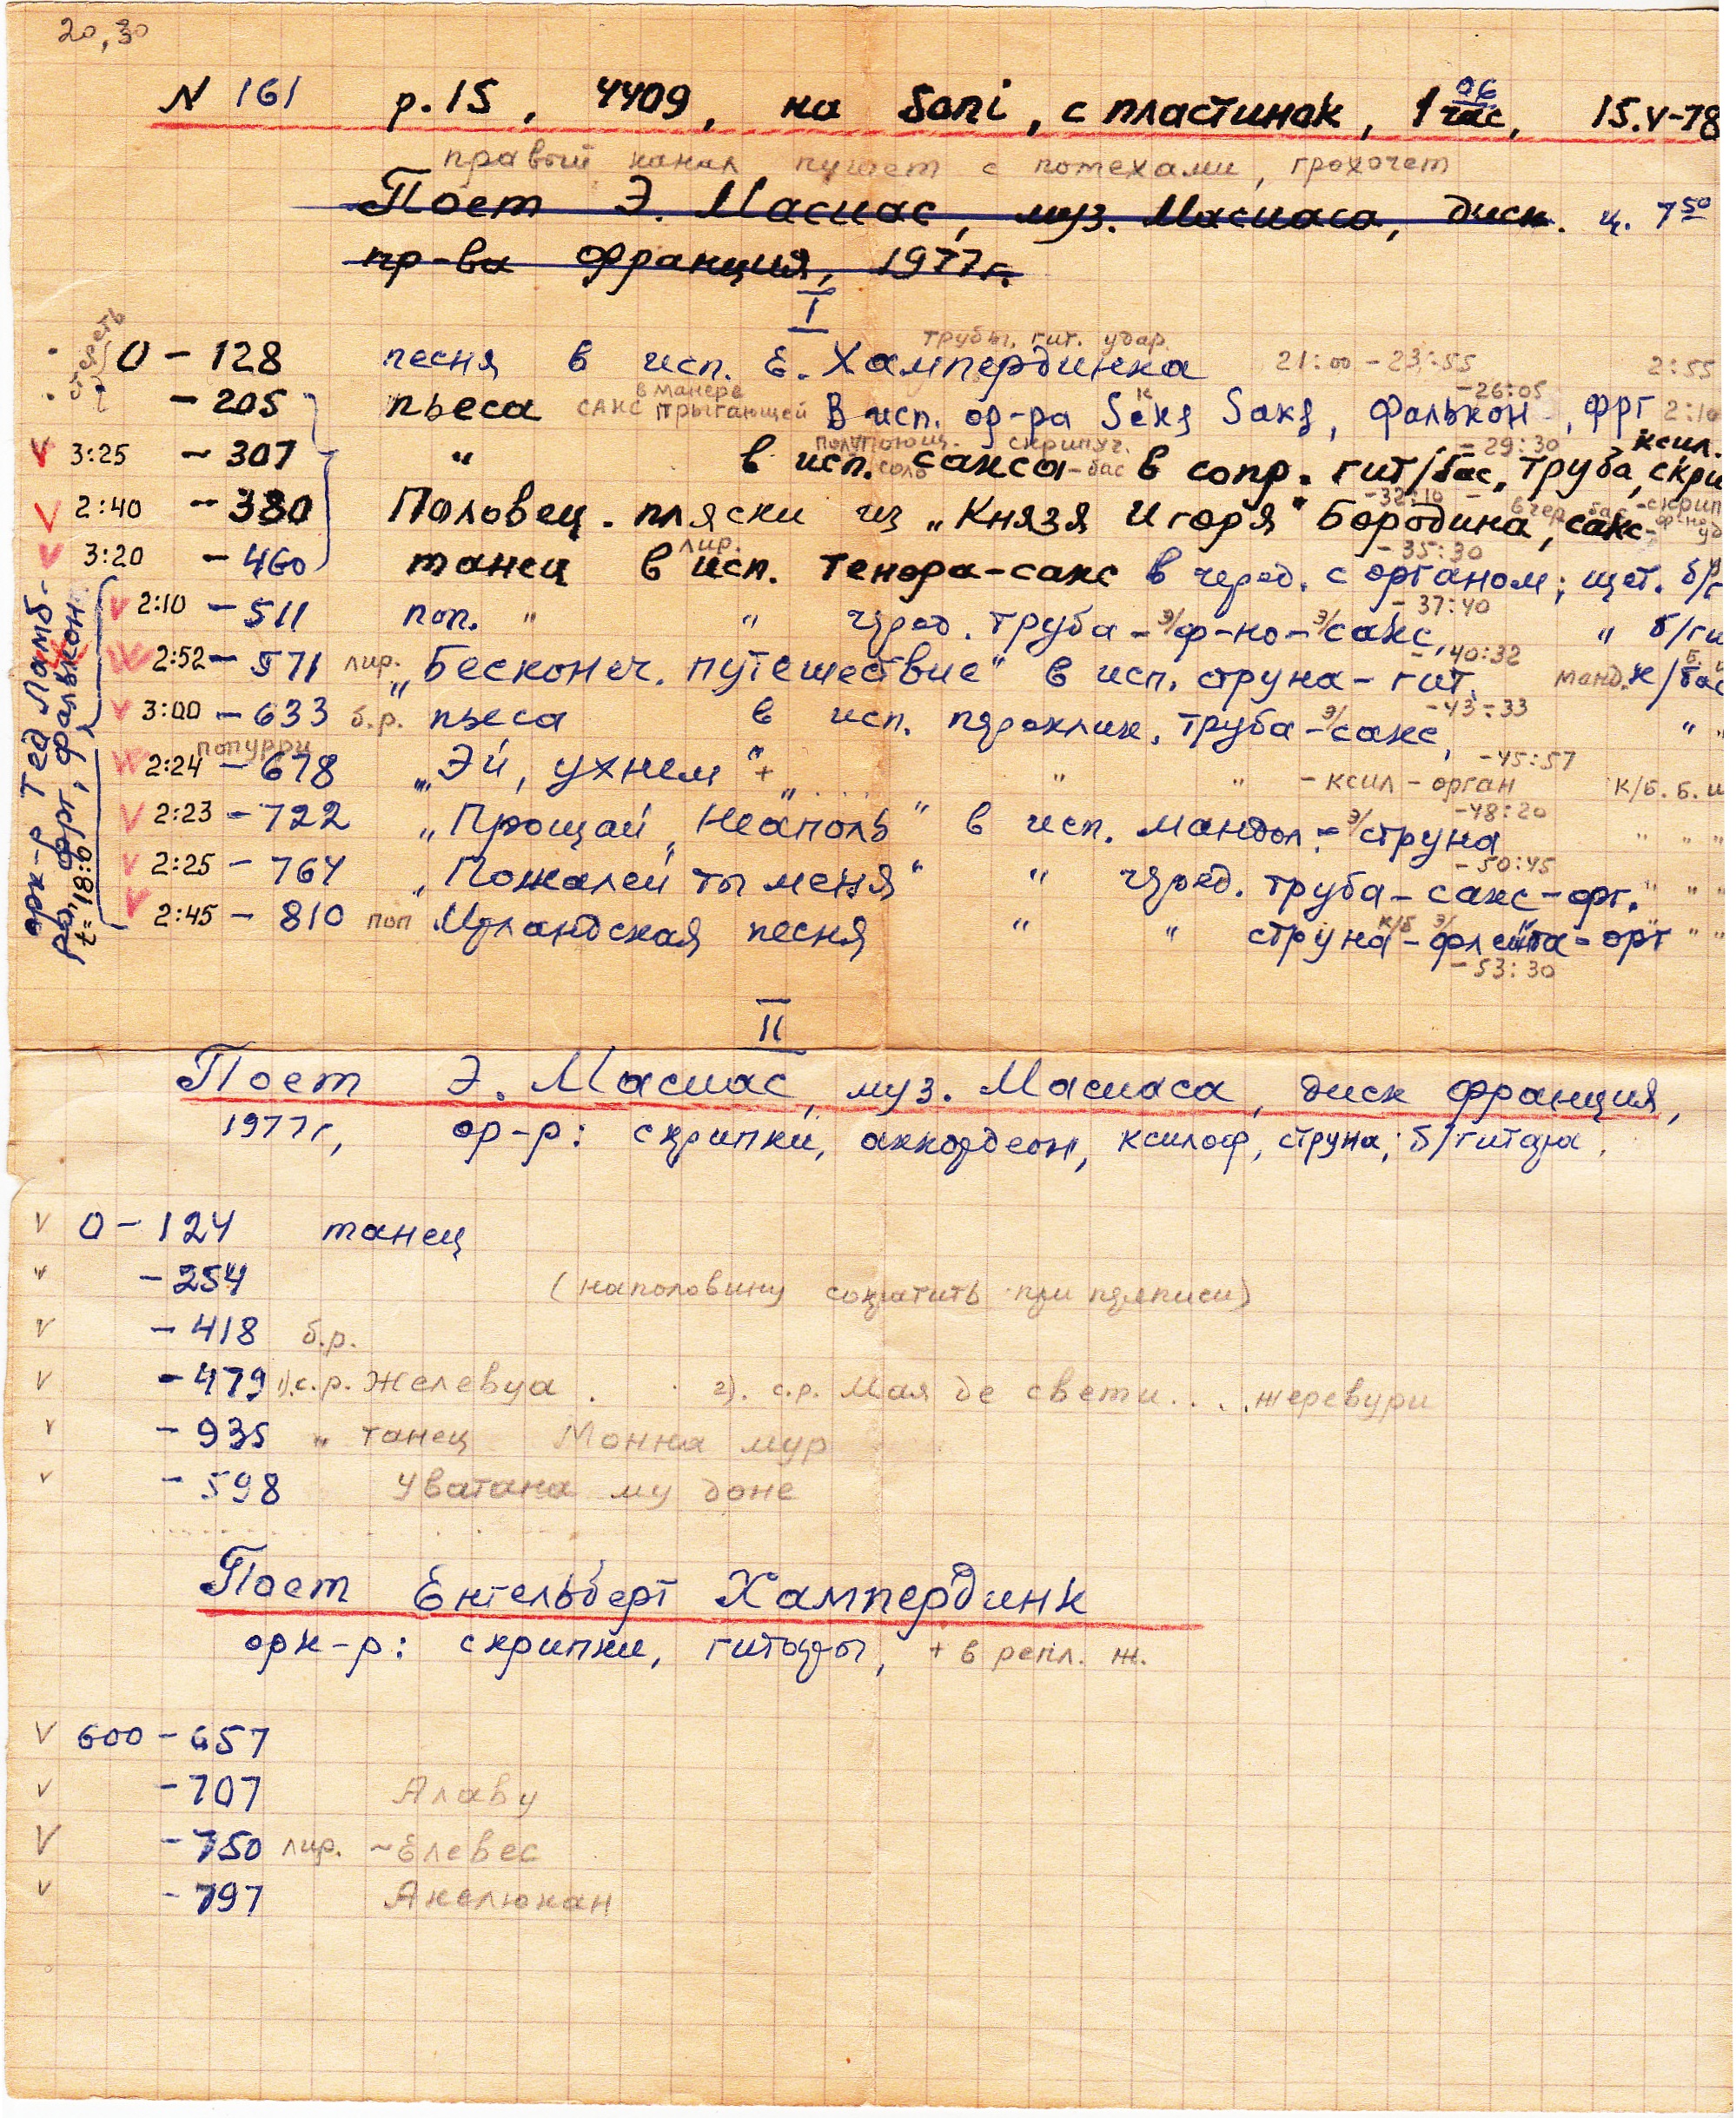 20,30
N 161 р. 15, 4409, на Soni, с пластинок, 1 час, 06 15.V-78
правый канал пишет с помехами, грохочет
Поет Э. Масиас, муз. Масиаса, диск. ц. 7 50
пр-ва Франция, 1977г.
I
стереть
трубы, гит. удар.
0 - 128 песня в исп. Е. Хампердинка 21:00 - 23:55 2:55
в манере - 26:05
- 205 пьеса сакс прыгающей В исп. ор-ра Seks Saks, Фалькон, ФРГ 2:10
скрипуч. - 29:30 ксил.
V 3:25 - 307 " в исп. соло сакса-бас в сопр. гит/бас, труба, скри
- 32:10 -
V 2:40 - 380 Половец. пляски из „Князя Игоря" Бородина, сакс-
лир. - 35:30
V 3:20 - 460 танец в исп. тенора-сакс в черед. с органом; щет. б/г
- 37:40
V 2:10 - 511 поп. " " черед. труба - э/ф-но - э/сакс, " б/ги
- 40:32
V 2:52 - 571 лир. „Бесконеч. путешествие" в исп. струна - гит. манд. к/бас
- 43:33
V 3:00 - 633 б.р. пьеса в исп. переклик. труба - э/сакс, " "
попурри - 45:57
V 2:24 - 678 „Эй, ухнем" + " " " - ксил - орган к/б. б. и
- 48:20
V 2:23 - 722 „Прощай, Неаполь" в исп. мандол. - э/струна " " "
- 50:45
V 2:25 - 764 „Пожалей ты меня" " черед. труба - сакс - орг. " " "
V 2:45 - 810 поп Ирландская песня " " струна - к/б э/флейта - орг " "
- 53:30
орк-р Тед Ламб-
рд, ФРГ, Фалькон
t = 18:0
II
Поет Э. Масиас, муз. Масиаса, диск Франция,
1977г, ор-р: скрипки, аккордеон, ксилоф, струна; б/гитара.
V 0 - 124 танец
V - 254 (наполовину сократить при переписи)
V - 418 б.р.
V - 479 1). с.р. Желевуа . 2). с.р. Мая де свети.... жеревури
V - 935 " танец Монна мур
V - 598 Уватана му доне
Поет Енгельберт Хампердинк
орк-р: скрипки, гитары, + в репл. ж.
V 600 - 657
V - 707 Алаву
V - 750 лир. ~ Елевес
V - 797 Акелюкан